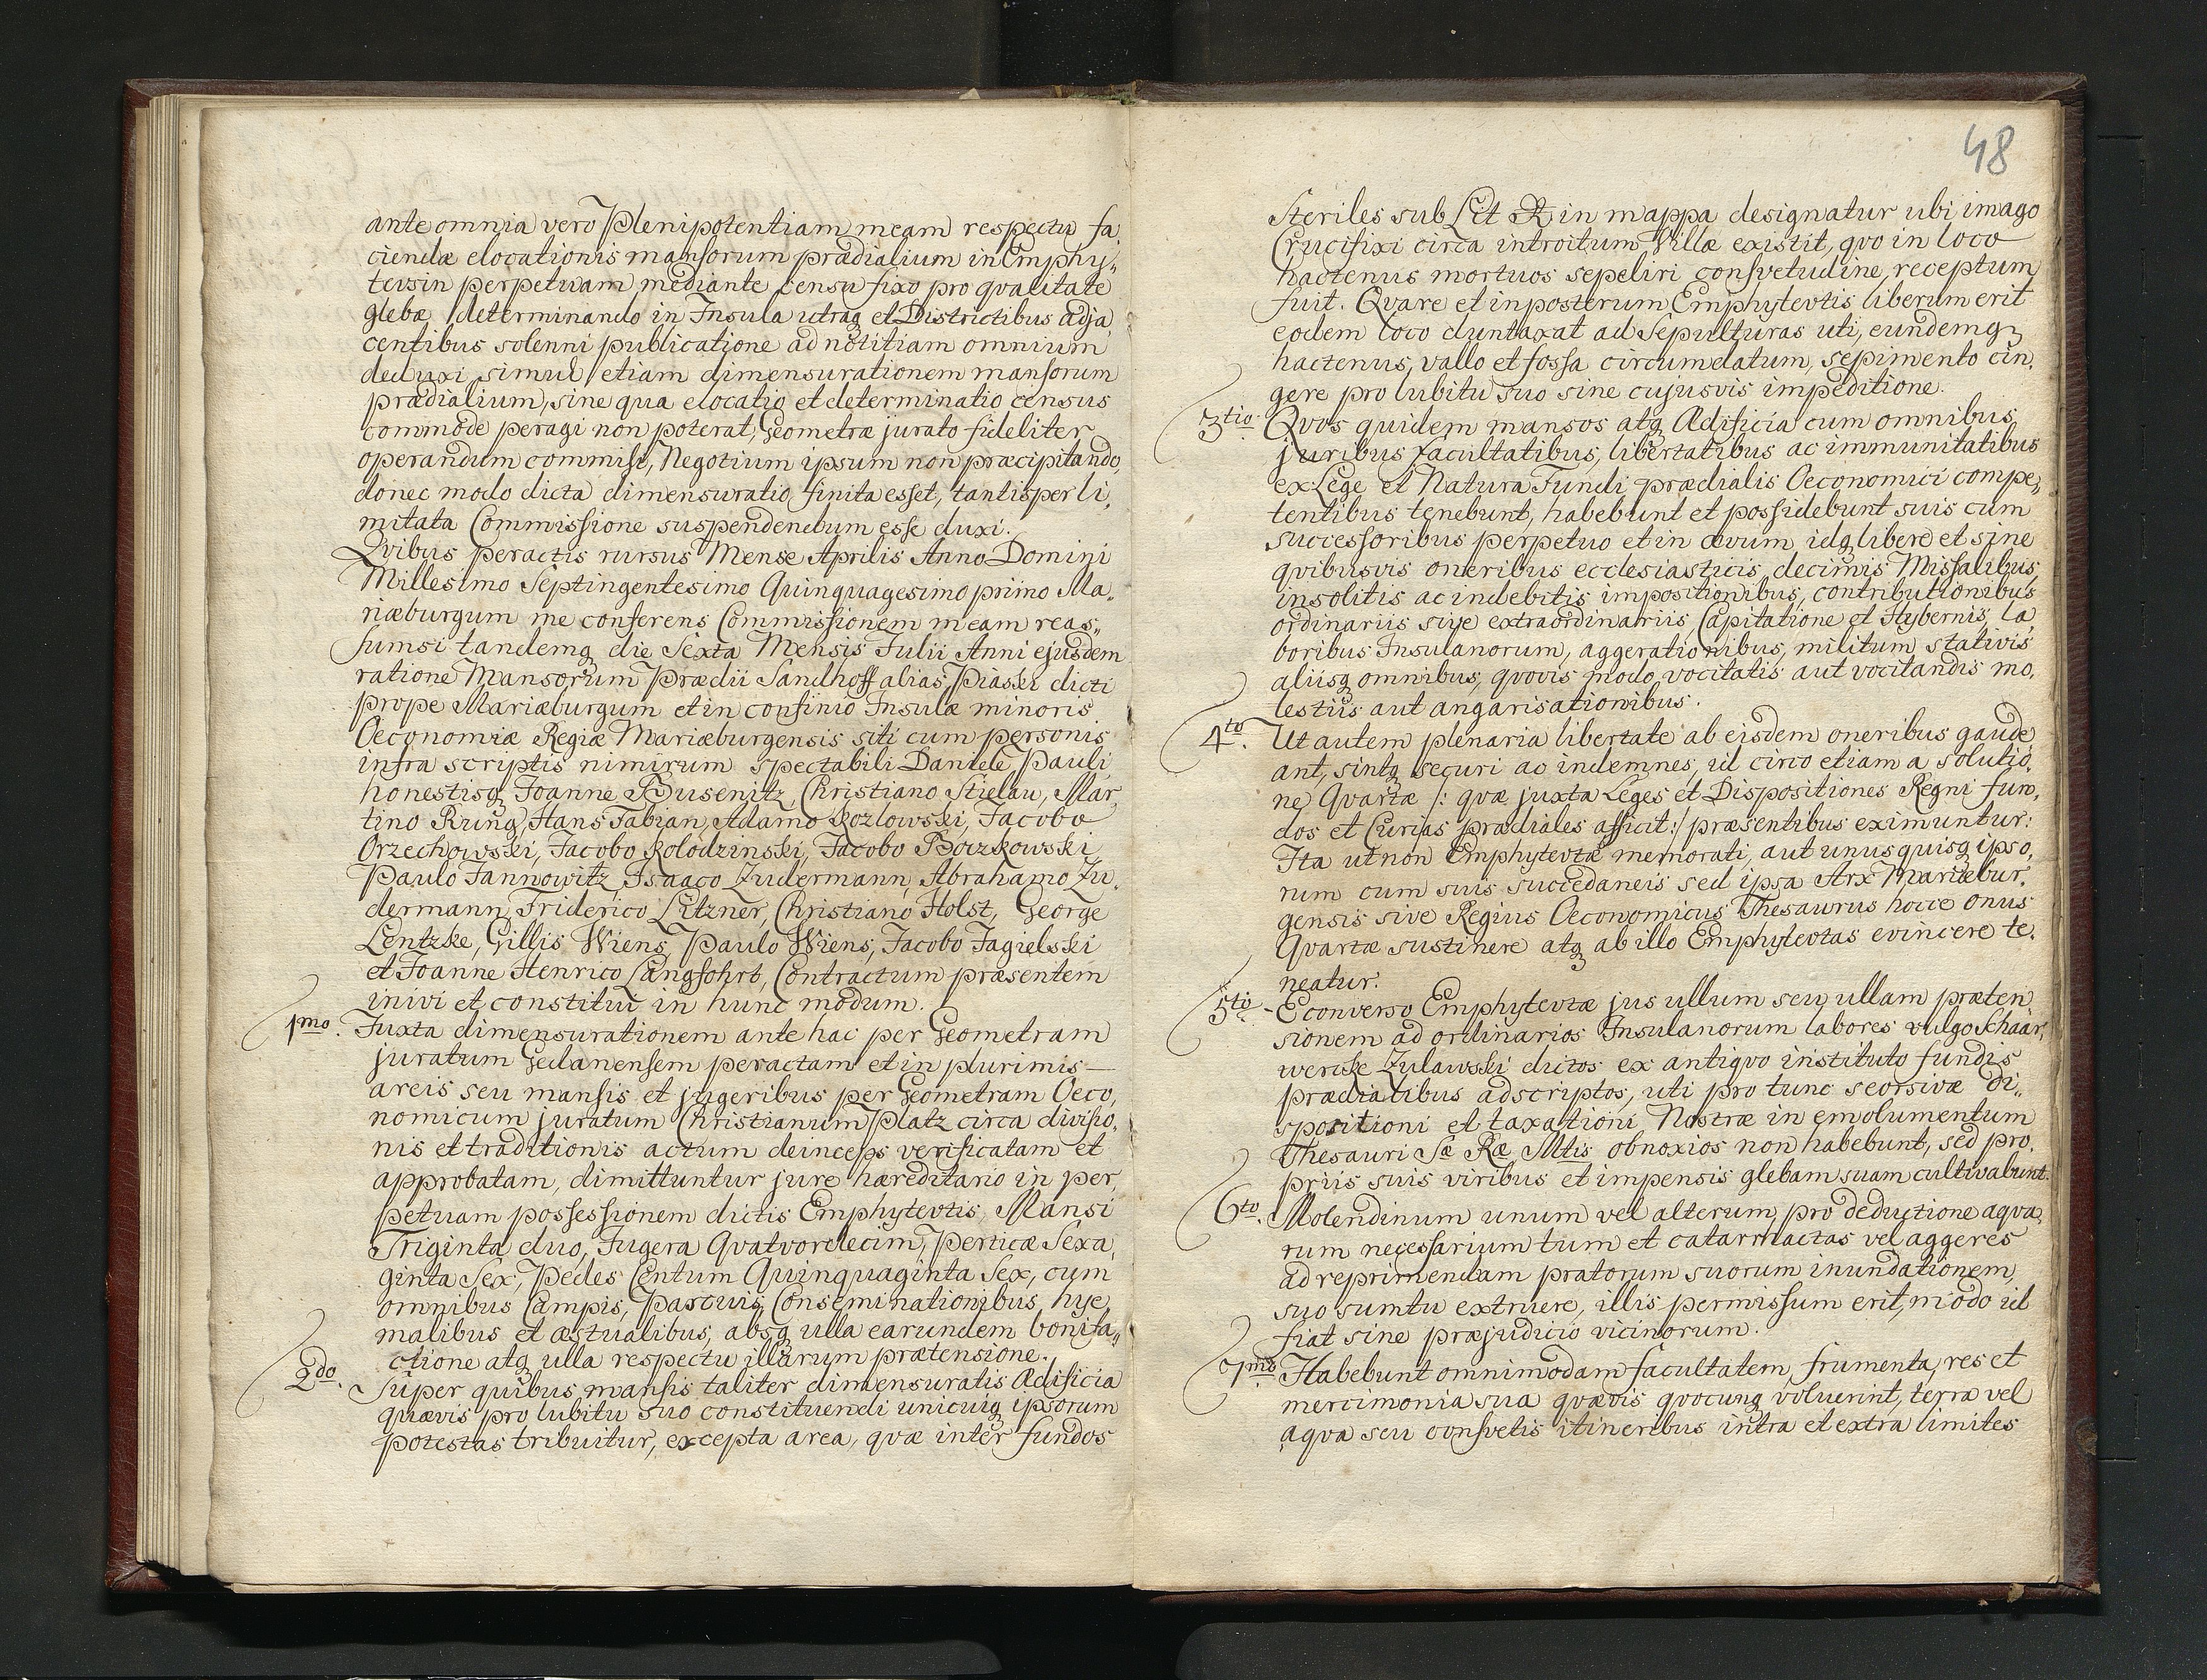 ante omnia vero Plenipotentiam meam respectu fa,
ciendæ elocationis mansorum prædialium in Emphy„
tevsin perpetuam mediante censu fixo pro qvalitate
glebæ determinando in Insula utraq et Districtibus adja,
centibus solenni publicatione ad notitiam omnium
deduxi simul etiam dimensurationem mansorum
prædialium, sine qua elocatio et determinatio census
commode peragi non poterat, Geometræ jurato fideliter
operandum commisi, Negotium ipsum non præcipitando,
donec modo dicta dimensuratio finita esset, tantisper li,
mitata Commissione suspendendum esse duxi.
Qvibus peractis rursus Mense Aprilis Anno Domini
Millesimo Septingentesimo Quinquagesimo primo Ma„
riæburgum me conferens Commissionem meam reas„
sumsi tandemq die Sexta Mensis Julii Anni ejusdem
ratione Mansorum Prædii Sandhoff alias Piaski dicti
prope Mariæburgum et in confinio Insulæ minoris
Oeconomiæ Regiæ Mariæburgensis siti cum personis
infra scriptis nimirum spectabili Daniele Pauli
honestisq Joanne Busenitz, Christiano Stielau, Mar,
tino Rung, Hans Fabian, Adamo Kozlowski, Jacobo
Orzechowski, Jacobo Kolodzinski, Jacobo Boczkowski
Paulo Jannowitz, Isaaco Zudermann, Abrahamo Zu,
dermann, Friderico Litzner, Christiano Holst, George
Lentzke, Gillis Wiens, Paulo Wiens, Jacobo Jagielski
et Joanne Henrico Langfohrt, Contractum præsentem
inivi et constitui in hunc modum.
1mo. Juxta dimensurationem ante hac per Geometram
juratum Gedanensem peractam et in plurimis
areis seu mansis et jugeribus per Geometram Oeco,
nomicum juratum Christianum Platz circa divisio,
nis et traditionis actum deinceps verificatam et
approbatam, dimittuntur jure hæreditario in per,
petuam possessionem dictis Emphytevtis, Mansi
Triginta duo, Jugera Qvatvordecim, Perticæ Sexa,
ginta Sex, Pedes Centum Quinquaginta Sex, cum
omnibus Campis, Pascuis, Conseminationibus hye,
malibus et æstualibus, absq ulla earundem bonifa„
ctione atq ulla respectu illarum prætensione.
2do. Super quibus mansis taliter dimensuratis Ædificia
quævis pro lubitu suo constituendi unicuiq ipsorum
potestas tribuitur, excepta area, quæ inter fundos
48
Steriles sub Lit A in mappa designatur ubi imago
Crucifixi circa introitum Villæ existit, qvo in loco
hactenus mortuos sepeliri consvetudine receptum
fuit. Qvare et inposterum Emphytevtis liberum erit
eodem loco duntaxat ad Sepulturas uti, eundemq
hactenus, vallo et fossa circumdatum, sepimento cin,
gere pro lubitu suo sine cujusvis impeditione.
3tio. Qvos quidem mansos atq Ædificia cum omnibus
juribus facultatibus, libertatibus ac immunitatibus
ex Lege et Natura Fundi prædialis Oeconomici compe„
tentibus tenebunt, habebunt et possidebunt suis cum
successoribus perpetuo et in ævum idq libere et sine
qvibusvis oneribus ecclesiasticis, decimis Missalibus,
insolitis ac indebitis impositionibus, contributionibus
ordinariis sive extraordinariis, Capitatione et Hybernis, la,
boribus Insulanorum, aggerationibus, militum stativis
aliisq omnibus, qvovis modo vocitatis aut vocitandis mo,
lestiis aut angarisationibus.
4to. Ut autem plenaria libertate ab eisdem oneribus gaude
ant, sintq securi ac indemnes, id circo etiam a solutio,
ne Qvartæ /: qvæ juxta Leges et Dispositiones Regni fun,
dos et Curias prædiales afficit :/ præsentibus eximuntur:
Ita ut non Emphytevtæ memorati, aut unusquisq ipso,
rum cum suis succedaneis sed ipsa Arx Mariæbur,
gensis sive Regius Oeconomicus Thesaurus hocce onus
Qvartæ sustinere atq ab illo Emphytevtas evincere te,
neatur.
5to. E converso Emphytevtæ jus ullum seu ullam præten
sionem ad ordinarios Insulanorum labores vulgo Schaar,
wercke Zulawski dictos ex antiqvo instituto fundis
prædialibus adscriptos, uti pro tunc seorsivæ di„
spositioni et taxationi Nostræ in emolumentum
Thesauri Sæ Ræ Mtis obnoxios non habebunt, sed pro,
priis suis viribus et impensis glebam suam cultivabunt.
6to. Molendinum unum vel alterum, pro deductione aqva,
rum necessarium tum et catarrhactas vel aggeres
ad reprimendam pratorum suorum inundationem,
suo sumtu extruere, illis permissum erit, modo id
fiat sine præjudicio vicinorum.
7mo. Habebunt omnimodam facultatem, frumenta, res et
mercimonia sua qvævis qvocunq voluerint, terra vel
aqva seu consvetis itineribus intra et extra limites